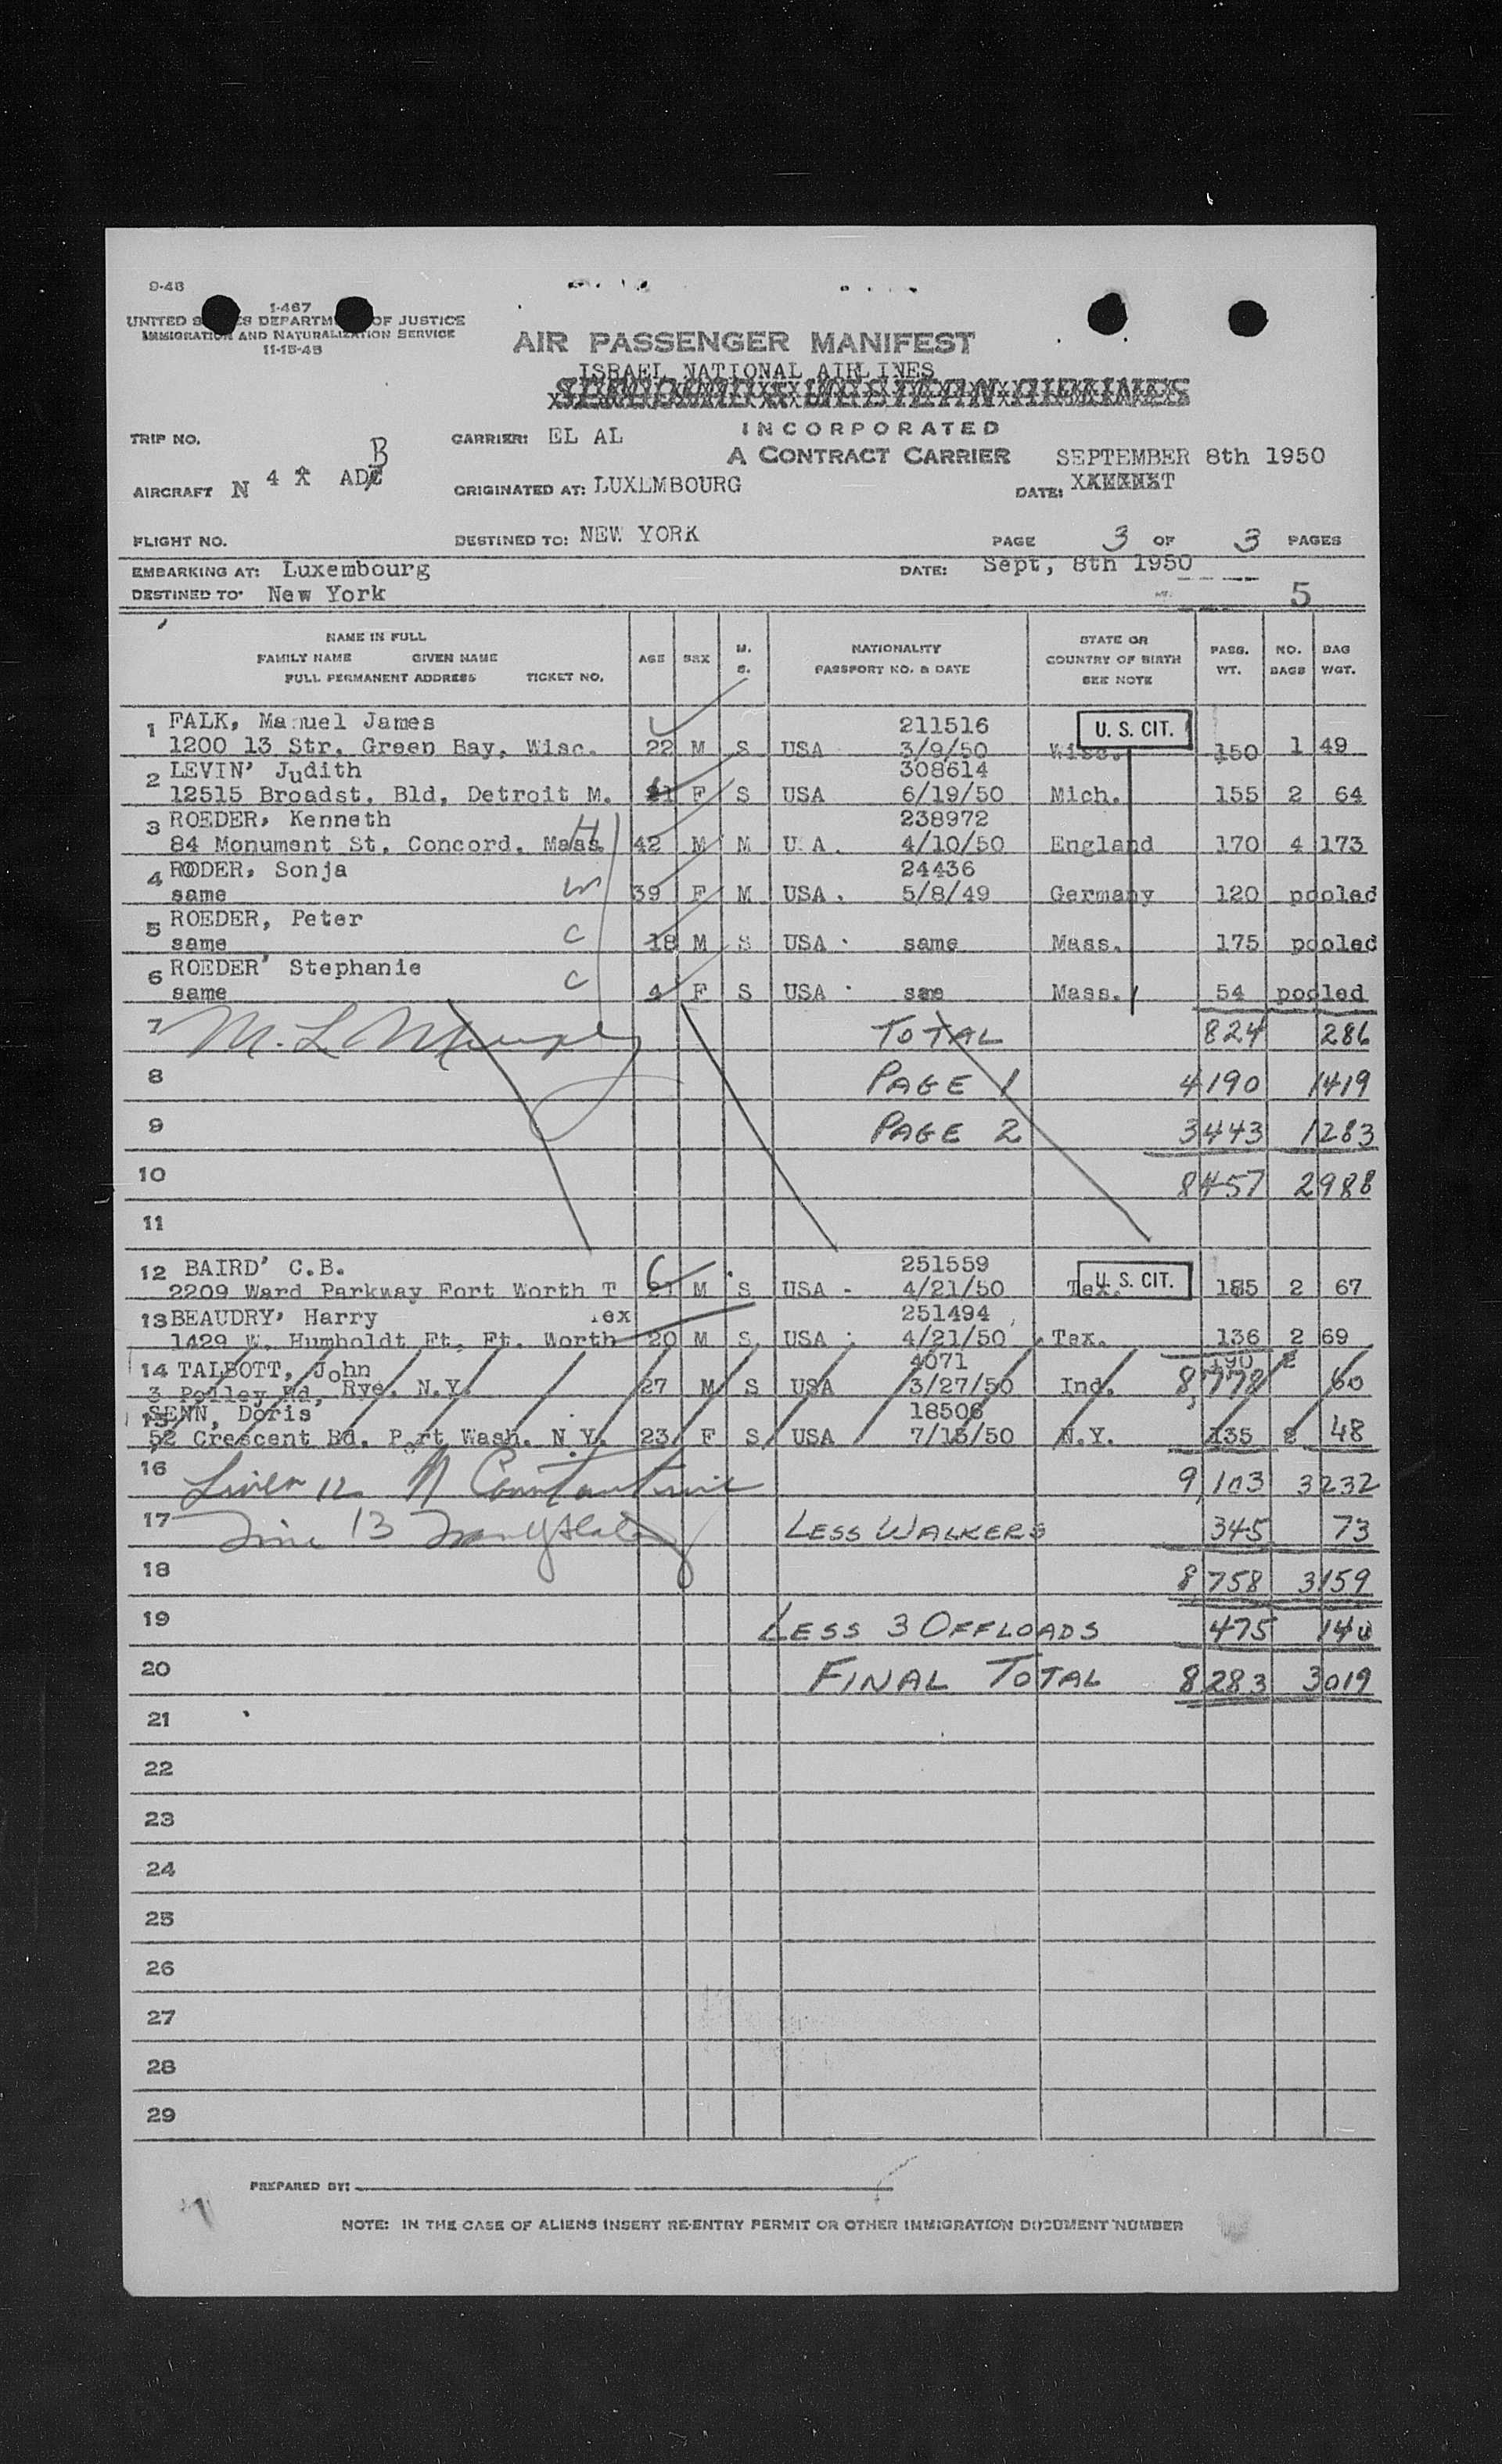 9-48
1-467
UNITED S ES DEPARTM OF JUSTICE
IMMIGRATION AND NATURALIZATION SERVICE
11-15-48
AIR PASSENGER MANIFEST
ISRAEL NATIONAL AIRLINES
INCORPORATED
A CONTRACT CARRIER
TRIP NO.
CARRIER: EL AL
SEPTEMBER 8th 1950
AIRCRAFT N 4 X AD B
ORIGINATED AT: LUXLMBOURG
DATE:
FLIGHT NO.
DESTINED TO: NEW YORK
PAGE 3 OF 3 PAGES
EMBARKING AT: Luxembourg
DATE: Sept, 8th 1950
DESTINED TO: New York
5
NAME IN FULL
FAMILY NAME GIVEN NAME
FULL PERMANENT ADDRESS TICKET NO.
AGE SEX M. S.
NATIONALITY
PASSPORT NO. & DATE
STATE OR
COUNTRY OF BIRTH
SEE NOTE
PASS. WT.
NO. BAGS
BAG WGT.
1 FALK, Manuel James 211516 U. S. CIT.
1200 13 Str. Green Bay, Wisc. 22 M S USA 3/9/50 Wisc. 150 1 49
2 LEVIN' Judith 308614
12515 Broadst. Bld, Detroit M. 21 F S USA 6/19/50 Mich. 155 2 64
3 ROEDER, Kenneth H 238972
84 Monument St. Concord. Mass. 42 M M U A. 4/10/50 England 170 4 173
4 ROODER, Sonja 24436
same W 39 F M USA. 5/8/49 Germany 120 pooled
5 ROEDER, Peter
same C 18 M S USA same Mass. 175 pooled
6 ROEDER' Stephanie
same C 4 F S USA sae Mass. 54 pooled
7 TOTAL 824 286
8 PAGE 1 4190 1419
9 PAGE 2 3443 1283
10 8457 2988
11
12 BAIRD' C.B. 251559 U. S. CIT.
2209 Ward Parkway Fort Worth T 21 M S USA - 4/21/50 Tex. 185 2 67
13 BEAUDRY' Harry ex 251494
1429 W. Humboldt Ft, Ft. Worth 20 M S. USA 4/21/50 Tex. 136 2 69
14 TALBOTT, John 4071 190 2
3 Polley Rd, Rye. N.Y. 27 M S USA 3/27/50 Ind. 8,778 60
15 SENN, Doris 18506
52 Crescent Bd. Port Wash. N.Y. 23 F S USA 7/15/50 N.Y. 135 2 48
16 9,103 3232
17 LESS WALKERS 345 73
18 8,758 3159
19 LESS 3 OFFLOADS 475 140
20 FINAL TOTAL 8283 3019
21
22
23
24
25
26
27
28
29
PREPARED BY:
NOTE: IN THE CASE OF ALIENS INSERT RE-ENTRY PERMIT OR OTHER IMMIGRATION DOCUMENT NUMBER